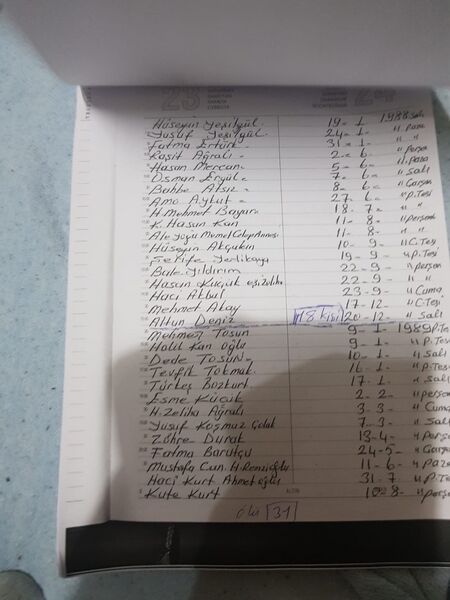 23
24
Hüseyin Yeşilgül. 19-1-1988 Salı
Yusuf Yeşilgül. 24-1- " Paza
Fatma Ertürk 31-1- " "
Raşit Ağralı- 2-6- " Perşe
Hasan Mercan. 5-6- " Paza
Osman Ergül- 7-6- " Salı
Bahbe Atsız- 8-6- " Çarşan
Amo Aykut- 27-6- " P.Tesi
H. Mehmet Bayar- 18-7- " "
K. Hasan Kan 11-8- " Perşenb
11-8- "
Hüseyin Akçakın 10-9- " C.Tesi
Şerife Yerlikaya 19-9- " P.Tesi
Bale Yıldırım 22-9- " Perşen
Hasan Küçük eşi Zeliha 22-9 "
Hacı Akbul 23-9- " Cuma
Mehmet Akay 17-12- " C.Tesi
Altun Deniz 18 Kişi 20-12- " Salı
Mehmet Tosun 9-1-1989 P.Te
Halil Kan oğlu 9-1- " P.Tesi
Dede Tosun- 10-1- " Salı
Tevfik Tokmak. 16-1- " P.Tesi
Türkeş Bozkurt 17-1- " Salı
Esme Küçük 2-2- " Perşem
H. Zeliha Ağralı 3-3- " Cuma
Yusuf Korkmaz Çolak 7-3- " Salı
Zöhre Durak 13-4- " Perşe
Fatma Barutçu 24-5- " Çarşa
Mustafa Can. H. Remzioğlu 11-6- " Paza
Hacı Kurt Ahmet oğlu 31-7 " P.Te
Kute Kurt 10-8- " Perşe
ölü 31